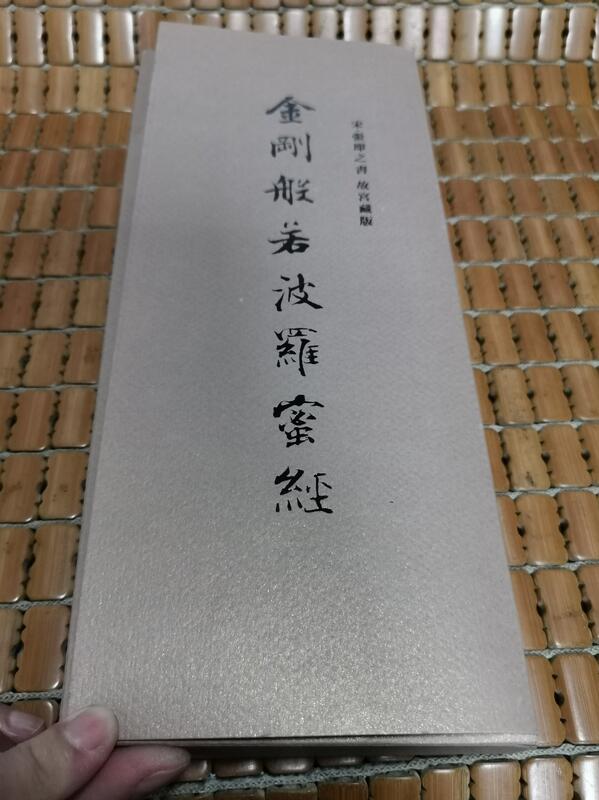 宋 張即之書 故宮藏版
金剛般若波羅蜜經